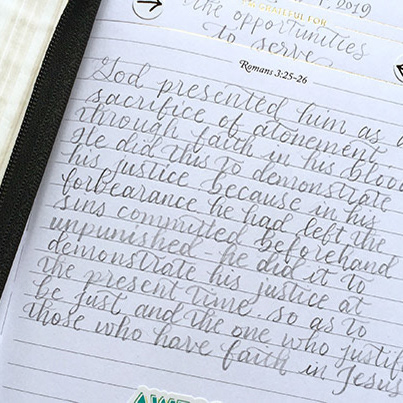 , 2019
GRATEFUL FOR
the opportunities
to serve
Romans 3:25-26
God presented him as a
sacrifice of atonement
through faith in his blood
He did this to demonstrate
his justice because in his
forbearance he had left the
sins committed beforehand
unpunished - he did it to
demonstrate his justice at
the present time. so as to
be just and the one who justif
those who have faith in Jesus